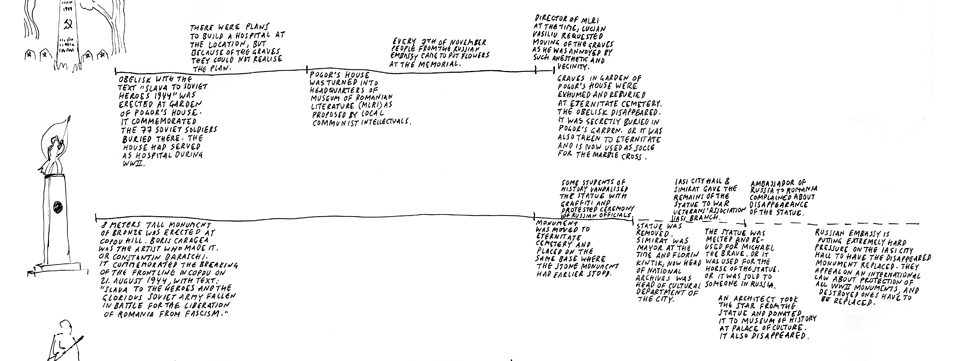 1944
THERE WERE PLANS
TO BUILD A HOSPITAL AT
THE LOCATION, BUT
BECAUSE OF THE GRAVES
THEY COULD NOT REALISE
THE PLAN.
EVERY 7TH OF NOVEMBER
PEOPLE FROM THE RUSSIAN
EMBASSY CAME TO PUT FLOWERS
AT THE MEMORIAL.
DIRECTOR OF MLRI
AT THE TIME, LUCIAN
VASILIU REQUESTED
MOVING OF THE GRAVES
AS HE WAS ANNOYED BY
SUCH ANESTHETIC AND
VECINITY.
OBELISK WITH THE
TEXT "SLAVA TO SOVIET
HEROES 1944" WAS
ERECTED AT GARDEN
OF POGOR'S HOUSE.
IT COMMEMORATED
THE 77 SOVIET SOLDIERS
BURIED THERE. THE
HOUSE HAD SERVED
AS HOSPITAL DURING
WWII.
POGOR'S HOUSE
WAS TURNED INTO
HEADQUARTERS OF
MUSEUM OF ROMANIAN
LITERATURE (MLRI) AS
PROPOSED BY LOCAL
COMMUNIST INTELLECTUALS.
GRAVES IN GARDEN OF
POGOR'S HOUSE WERE
EXHUMED AND REBURIED
AT ETERNITATE CEMETERY.
THE OBELISK DISAPPEARED.
IT WAS SECRETLY BURIED IN
POGOR'S GARDEN. OR IT WAS
ALSO TAKEN TO ETERNITATE
AND IS NOW USED AS SOCLE
FOR THE MARBLE CROSS.
SOME STUDENTS OF
HISTORY VANDALISED
THE STATUE WITH
GRAFFITI AND
PROTESTED CEREMONY
OF RUSSIAN OFFICIALS.
IASI CITY HALL &
SIMIRAT GAVE THE
REMAINS OF THE
STATUE TO WAR
VETERANS' ASSOCIATION
IASI BRANCH.
AMBASSADOR OF
RUSSIA TO ROMANIA
COMPLAINED ABOUT
DISAPPEARANCE
OF THE STATUE.
8 METERS TALL MONUMENT
OF BRONZE WAS ERECTED AT
COPOU HILL. BORIS CARAGEA
WAS THE ARTIST WHO MADE IT.
OR CONSTANTIN BARASCHI.
IT COMMEMORATED THE BREAKING
OF THE FRONTLINE IN COPOU ON
21. AUGUST 1944, WITH TEXT:
"SLAVA TO THE HEROES AND THE
GLORIOUS SOVIET ARMY FALLEN
IN BATTLE FOR THE LIBERATION
OF ROMANIA FROM FASCISM."
MONUMENT
WAS MOVED TO
ETERNITATE
CEMETERY AND
PLACED ON THE
SAME BASE WHERE
THE STONE MONUMENT
HAD EARLIER STOOD.
STATUE WAS
REMOVED.
SIMIRAT WAS
MAYOR AT THE
TIME AND FLORIN
KINTIK, NOW HERE
OF NATIONAL
ARCHIVES WAS
HEAD OF CULTURAL
DEPARTMENT OF
THE CITY.
THE STATUE WAS
MELTED AND RE-
USED FOR MICHAEL
THE BRAVE. OR IT
WAS USED FOR THE
HORSE OF THE STATUE.
OR IT WAS SOLD TO
SOMEONE IN RUSSIA.
AN ARCHITECT TOOK
THE STAR FROM THE
STATUE AND DONATED
IT TO MUSEUM OF HISTORY
AT PALACE OF CULTURE.
IT ALSO DISAPPEARED.
RUSSIAN EMBASSY IS
PUTING EXTREMELY HARD
PRESSURE ON THE IASI CITY
HALL TO HAVE THE DISAPPEARED
MONUMENT REPLACED. THEY
APPEAL ON AN INTERNATIONAL
LAW ABOUT PROTECTION OF
ALL WWII MONUMENTS, AND
DESTROYED ONES HAVE TO
BE REPLACED.